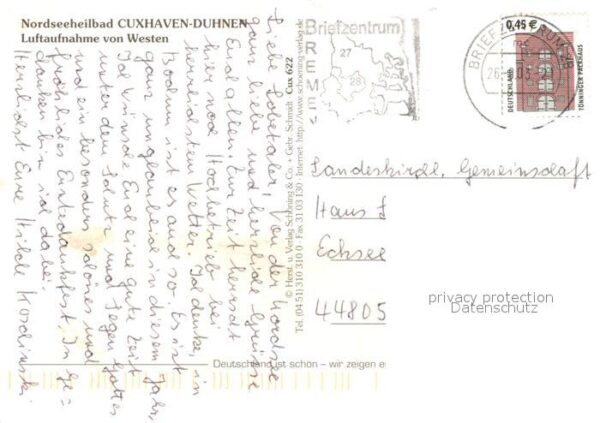 Nordseeheilbad CUXHAVEN-DUHNEN
Luftaufnahme von Westen
Liebe Lobetaler, Von der Nordsee
ganz liebe und herzliche Grüsse
Euch allen. Zur Zeit herrscht
hier noch Hochbetrieb bei
herrlichstem Wetter. Ich denke, in
Bochum ist es auch so. Es ist
ganz unglaublich in diesem Jahr,
Ich wünsche Euch eine gute Zeit
unter dem Schutz und Segen Gottes
und ein besonders schönes und
fröhliches Erntedankfest. In Ge=
danken bin ich dabei.
Herzlichst Eure Hilde
© Herst. u. Verlag Schöning & Co. + Gebr. Schmidt · Cux 622
Tel. (04 51) 310 310 0 · Fax 31 03 130 · Internet: www.schoening-verlag.de
Briefzentrum
BREMEN
27
28
BRIEFZENTRUM
0,45 €
DEUTSCHLAND
TÖNNINGER PACKHAUS
Landeskirchl. Gemeinschaft
Haus
44805
privacy protection
Datenschutz
Deutschland ist schön – wir zeigen e